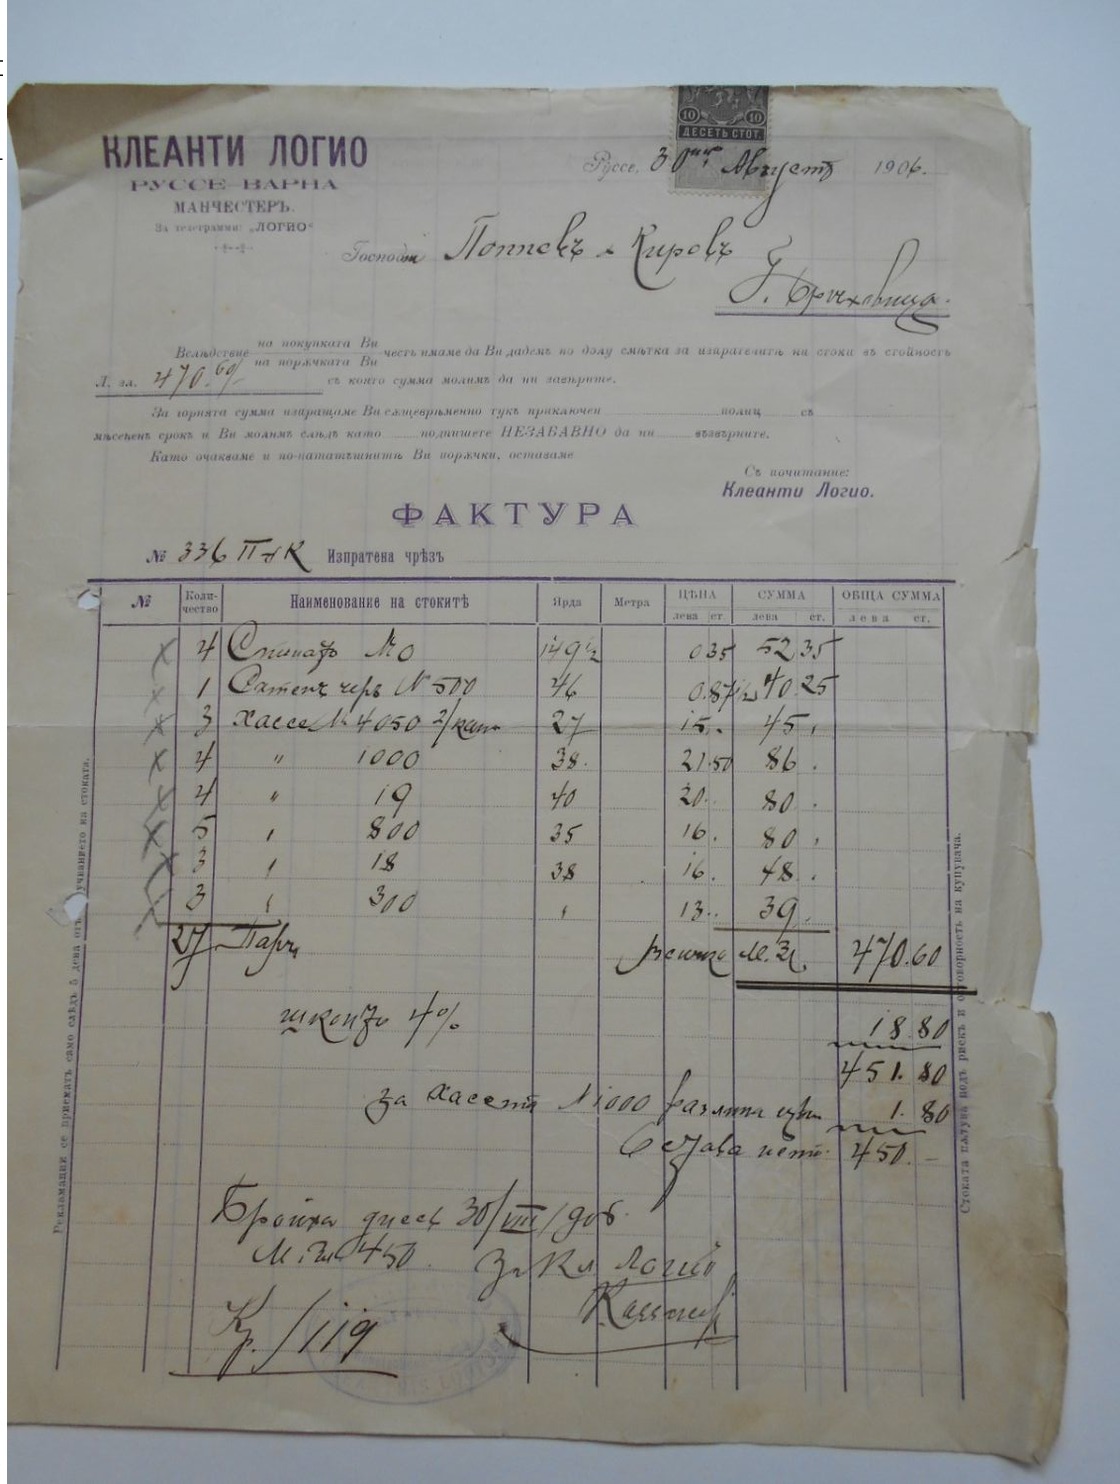 10 10
ДЕСЕТЬ СТОТ.
КЛЕАНТИ ЛОГИО
РУССЕ—ВАРНА
МАНЧЕСТЕРЪ.
За телеграмми: „ЛОГИО“
Руссе, 30 Августъ 1906
Господа Поппевъ & Кировъ
Г. Орѣховица.
Вслѣдствие на покупката Ви
на порѫчката Ви
честь имаме да Ви дадемъ по долу смѣтка за изпратенитѣ ни стоки въ стойность
Л. зл. 470.60/ съ която сумма молимъ да ни заверите.
За горнята сумма изпращаме Ви сѫщеврѣменно тукъ приключен полиц съ
мѣсеченъ срокъ и Ви молимъ слѣдъ като подпишете НЕЗАБАВНО да ни възвърните.
Като очакваме и по-нататъшнитѣ Ви порѫчки, оставаме
Съ почитание:
Клеанти Логио.
ФАКТУРА
№ 336 П & К Изпратена чрѣзъ
№ Коли-чество Наименование на стокитѣ Ярда Метра ЦѢНА СУММА ОБЩА СУММА
лева ст. лева ст. лева ст.
4 МО 149 1/2 0 35 52 35
1 Сатенъ черъ N 500 46 0.87 1/2 40 25
3 Хассе № 4050 27 15. 45.
4 " 1000 38. 21.50 86.
4 " 19 40 20. 80.
5 " 800 35 16. 80.
3 " 18 38 16. 48.
3 " 300 " 13. 39.
27 Парч. Всичко 470.60
шконто 4% 18 80
451.80
за хасета N 1000 разлика 1.80
Остава нето 450.—
Броиха днесь 30/VIII/906
450. За Кл Логио
Кр. /119
Рекламации се приематъ само слѣдъ 5 дена отъ получванието на стоката.
Стоката пѫтува подъ рискъ и отговорность на купувача.